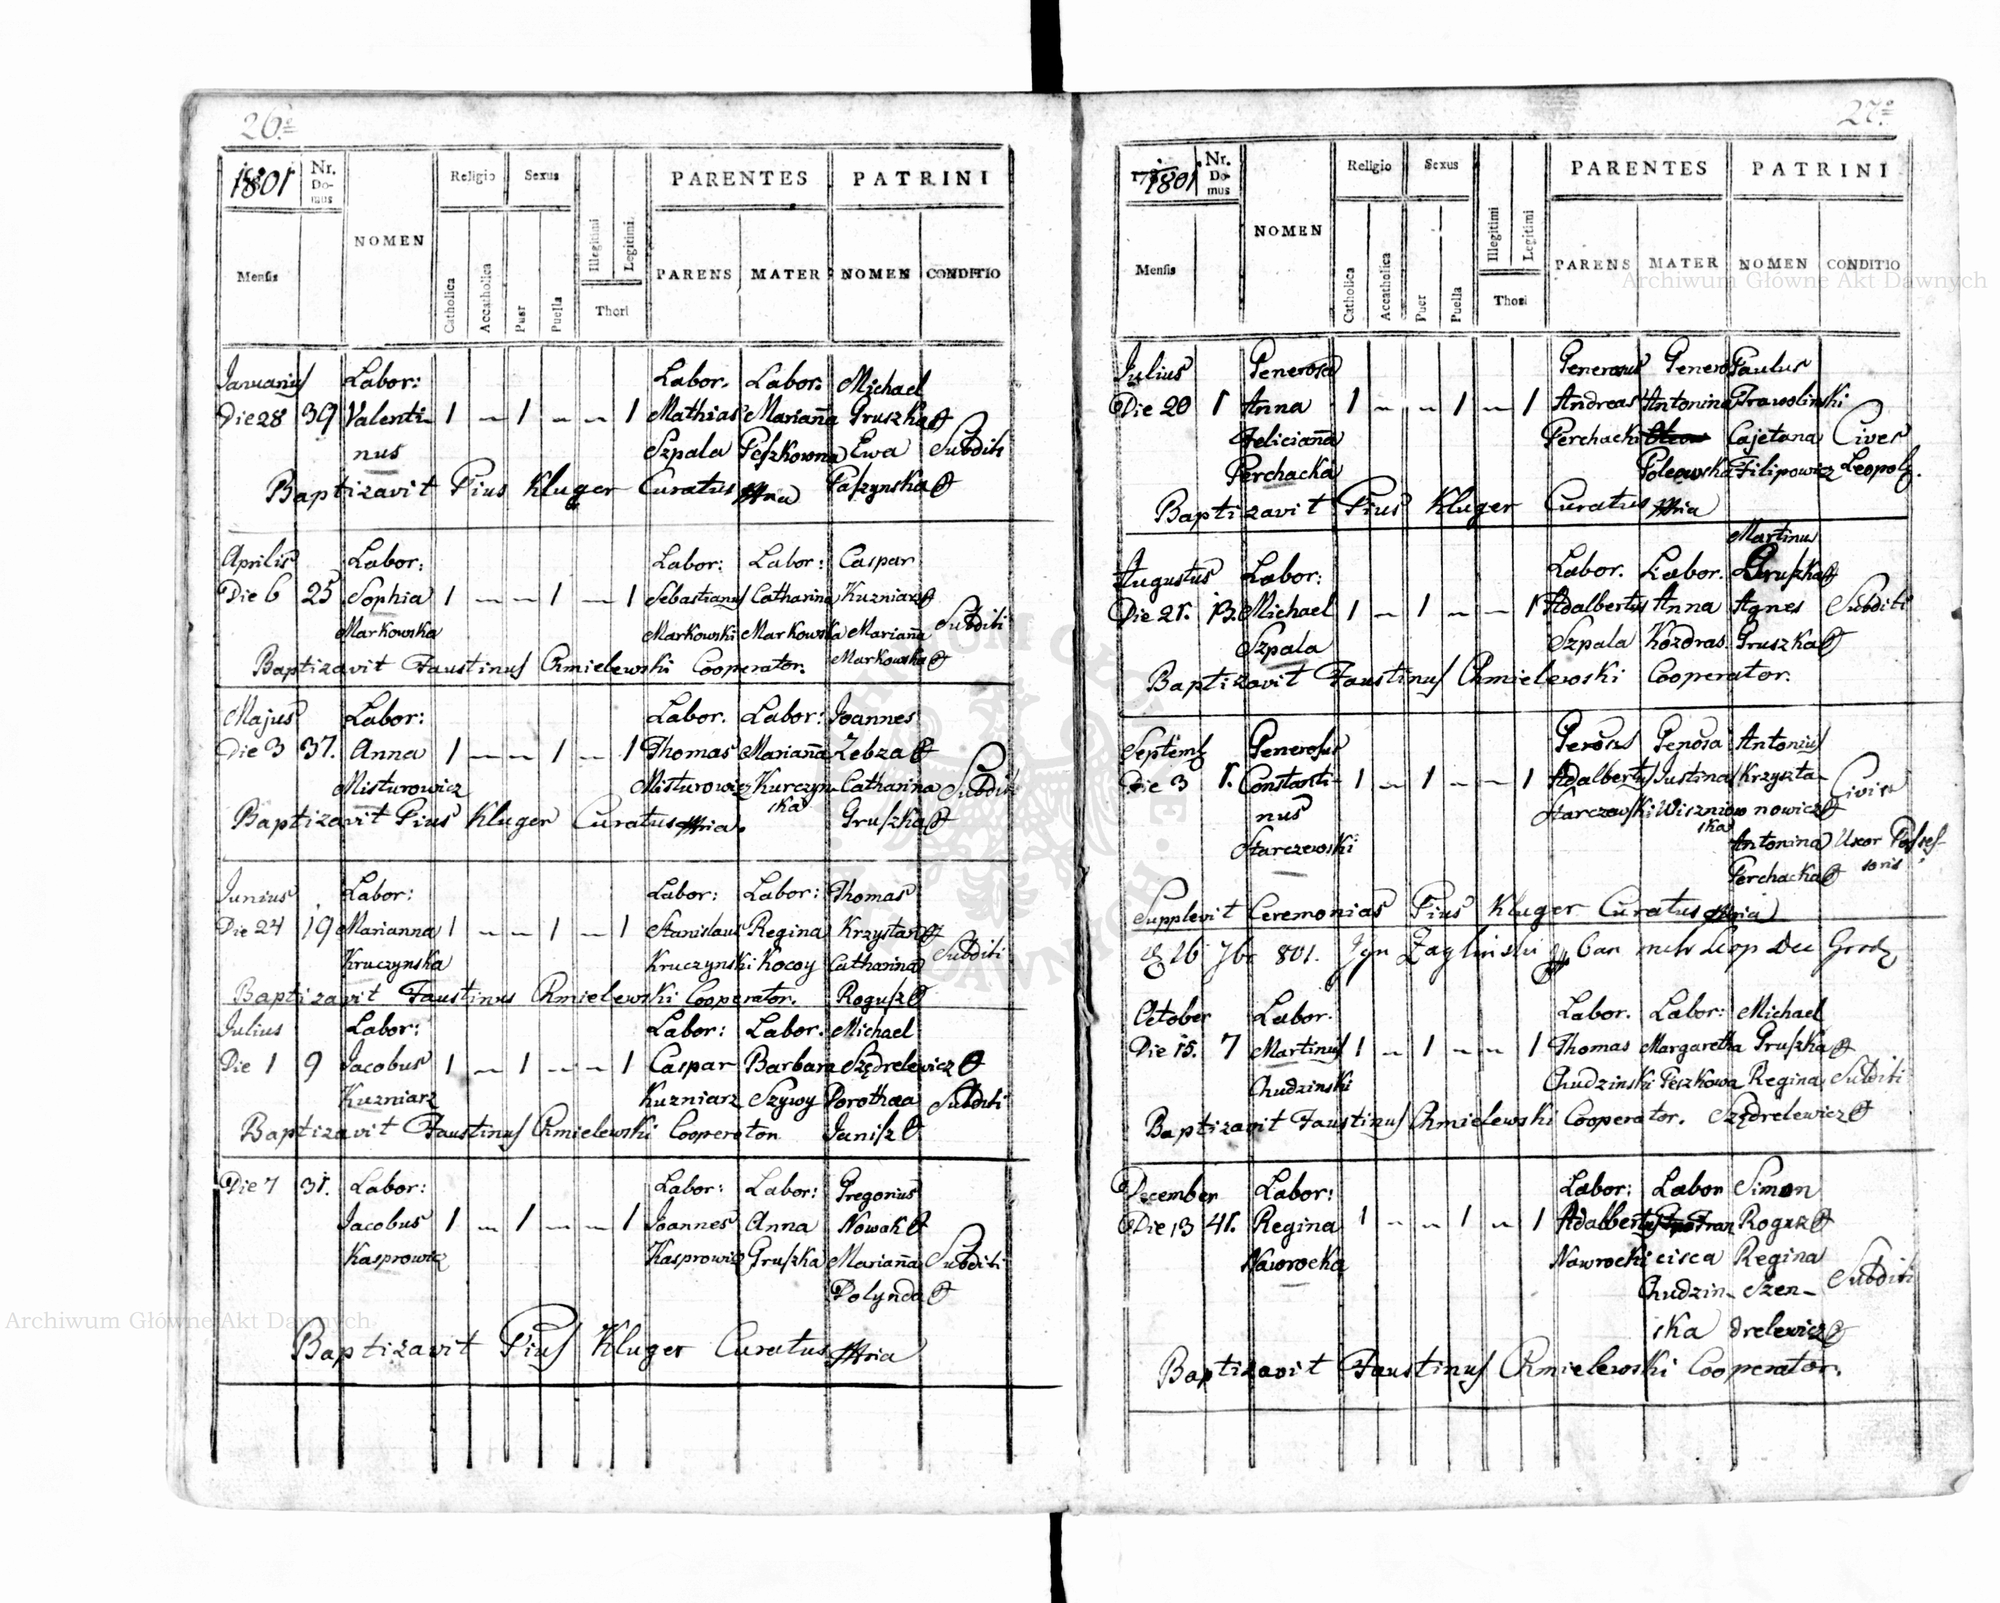 26.
1801 Nr. Domus NOMEN Religio Sexus Illegitimi Legitimi PARENTES PATRINI
Mensis Catholica Accatholica Puer Puella Thori PARENS MATER NOMEN CONDITIO
Januarius Labor: Labor. Labor: Michael
Die 28 39 Valenti- 1 — 1 — — 1 Mathias Marianna Gruszka
nus Szpala Peszkowna Ewa Subditi
Baptizavit Pius Kluger Curatus Paszynska
Aprilis Labor: Labor: Labor: Caspar
Die 6 25 Sophia 1 — — 1 — 1 Sebastianus Catharina Kuzniarz
Markowska Markowski Markowska Marianna Subditi
Baptizavit Faustinus Chmielewski Cooperator. Markowska
Majus Labor: Labor. Labor: Joannes
Die 3 37. Anna 1 — — 1 — 1 Thomas Marianna Zebza
Misturowicz Misturowicz Kurczyn- Catharina Subditi
ska
Baptizavit Pius Kluger Curatus Gruszka
Junius Labor: Labor: Labor: Thomas
Die 24 19 Marianna 1 — — 1 — 1 Stanislaus Regina Krzystan
Kruczynska Kruczynski Kocoy Catharina Subditi
Baptizavit Faustinus Chmielewski Cooperator. Rogusz
Julius Labor: Labor: Labor. Michael
Die 1 9 Jacobus 1 — 1 — — 1 Caspar Barbara Szędrelewicz
Kuzniarz Kuzniarz Szywy Dorothea Subditi
Baptizavit Faustinus Chmielewski Cooperator Janisz
Die 7 31. Labor: Labor: Labor: Gregorius
Jacobus 1 — 1 — — 1 Joannes Anna Nowak
Kasprowicz Kasprowicz Gruszka Marianna Subditi
Polynda
Baptizavit Pius Kluger Curatus
27.
1801 Nr. Domus NOMEN Religio Sexus Illegitimi Legitimi PARENTES PATRINI
Mensis Catholica Accatholica Puer Puella Thori PARENS MATER NOMEN CONDITIO
Julius Generosa Generosus Generosa Paulus
Die 20 1 Anna 1 — — 1 — 1 Andreas Antonina Prawolinski
Feliciana Perchacki Cajetana Cives
Perchacka Poleowska Filipowicz Leopol.
Baptizavit Pius Kluger Curatus
Martinus
Augustus Labor: Labor. Labor. Gruszka
Die 21. 13. Michael 1 — 1 — — 1 Adalbertus Anna Agnes Subditi
Szpala Szpala Kozdras. Gruszka
Baptizavit Faustinus Chmielewski Cooperator.
Septemb Generosus Antonius
Die 3 1. Constanti- 1 — 1 — — 1 Adalbertus Justina Krzyszta-
nus Starczewski Wiszniow nowicz
ska
Starczewski Antonina Uxor Posses-
Perchacka soris
Supplevit Ceremonias Pius Kluger Curatus
16 7br 801.
October Labor. Labor. Labor: Michael
Die 15. 7 Martinus 1 — 1 — — 1 Thomas Margaretha Gruszka
Chudzinski Chudzinski Peszkowa Regina Subditi
Baptizavit Faustinus Chmielewski Cooperator. Szędrelewicz
December Labor: Labor: Labor Simon
Die 13 41. Regina 1 — — 1 — 1 Adalbertus Fran Rogusz
Nawrocka Nawrocki cisca Regina
Chudzin- Szen- Subditi
ska drelewicz
Baptizavit Faustinus Chmielewski Cooperator.
Archiwum Główne Akt Dawnych
Archiwum Główne Akt Dawnych